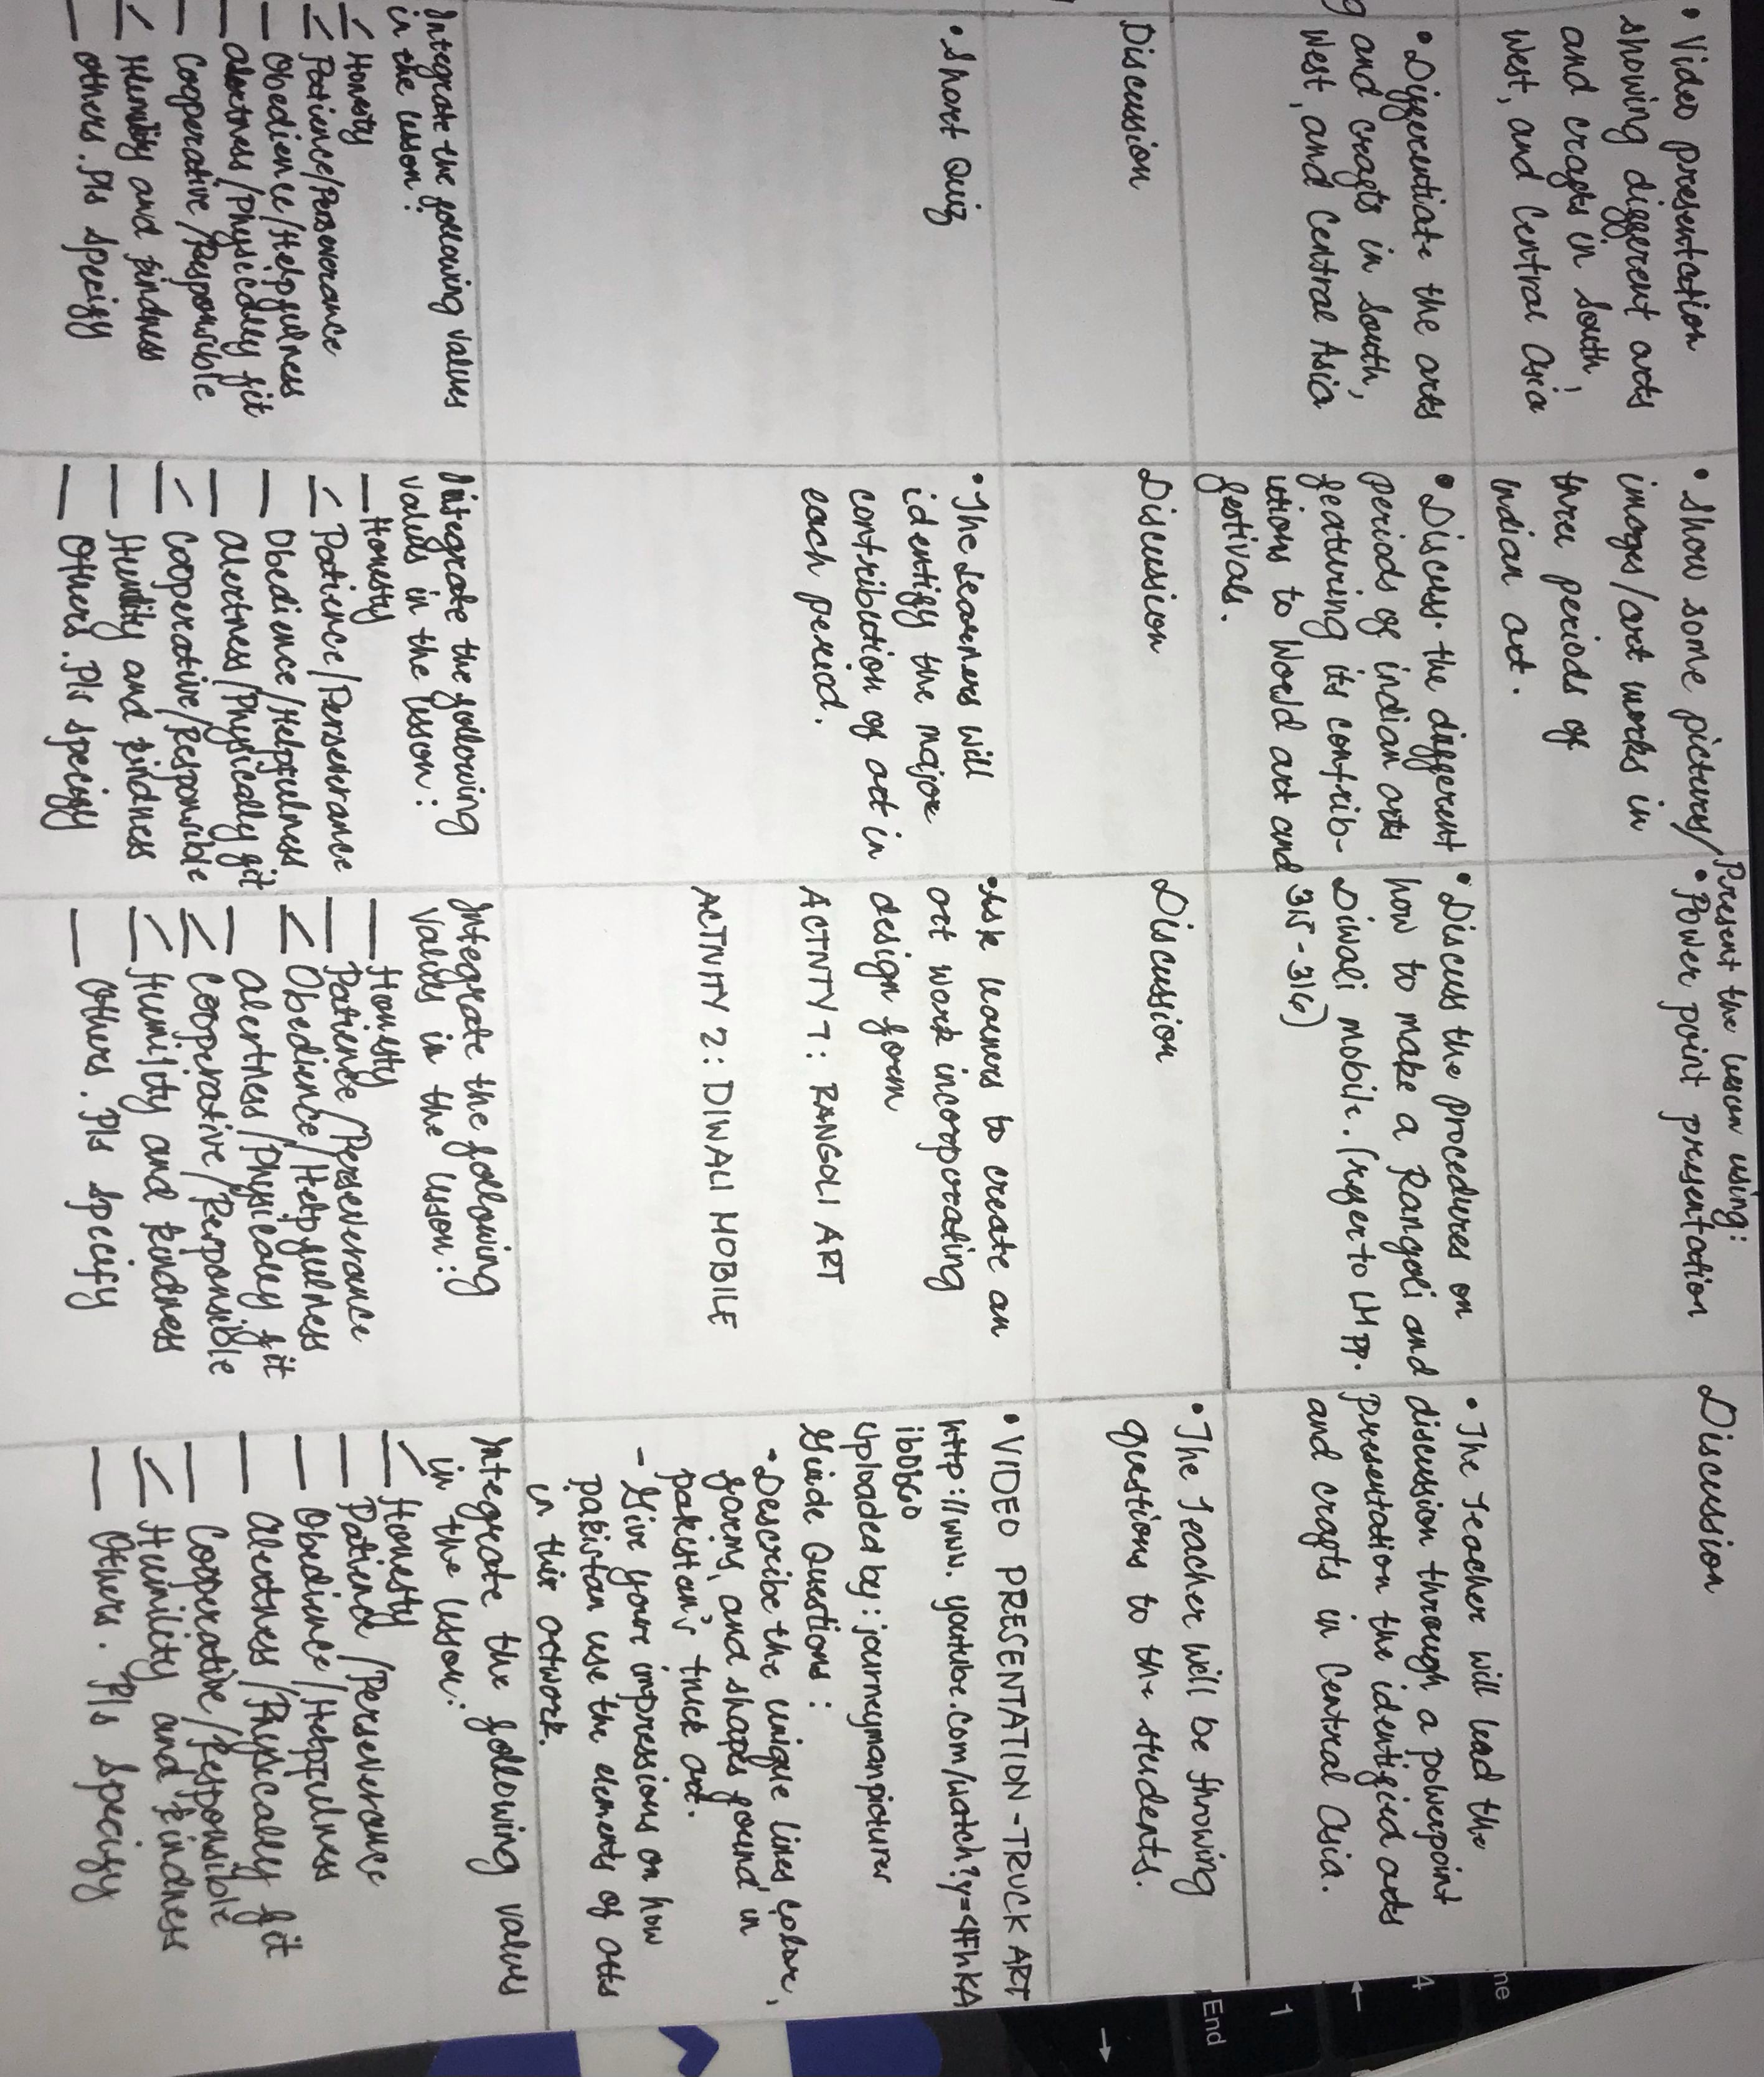 • Video presentation
showing different arts
and crafts in South,
West, and Central Asia
• Show some pictures/
images/art works in
three periods of
Indian art.
Present the lesson using:
• Power point presentation
Discussion
• Differentiate the arts
and crafts in South,
West, and Central Asia
• Discuss the different
periods of indian arts
featuring its contrib-
utions to World art and
festivals.
• Discuss the procedures on
how to make a Rangoli and
Diwali mobile. (refer to LM pp.
315-316)
• The Teacher will lead the
discussion through a powerpoint
presentation the identified arts
and crafts in Central Asia.
Discussion
Discussion
Discussion
• The Teacher will be throwing
questions to the students.
• Short Quiz
• The Learners will
identify the major
contribution of art in
each period.
• Ask learners to create an
art work incorporating
design form
ACTIVITY 1: RANGOLI ART
ACTIVITY 2: DIWALI MOBILE
• VIDEO PRESENTATION - TRUCK ART
Uploaded by: journeymanpictures
Guide Questions:
• Describe the unique lines color,
forms, and shapes found in
pakistan's truck art.
- Give your impressions on how
pakistan use the elements of arts
in this artwork.
Integrate the following values
in the lesson:
Honesty
Patience/Perseverance
Obedience/Helpfulness
alertness/Physically fit
Cooperative/Responsible
Humility and kindness
others. Pls specify
Integrate the following
values in the lesson:
Honesty
Patience/Perserverance
Obedience/Helpfulness
alertness/Physically fit
Cooperative/Responsible
Humility and kindness
Others. Pls specify
Integrate the following
Values in the lesson:
Honesty
Patience/Perseverance
Obedience/Helpfulness
alertness/Physically fit
Cooperative/Responsible
Humility and kindness
Others. Pls specify
Integrate the following values
in the lesson:
Honesty
/Perseverance
Obedince/Helpfulness
alertness/Physically fit
Cooperative/Responsible
Humility and kindness
Others. Pls specify
me
4
←
1
End
→